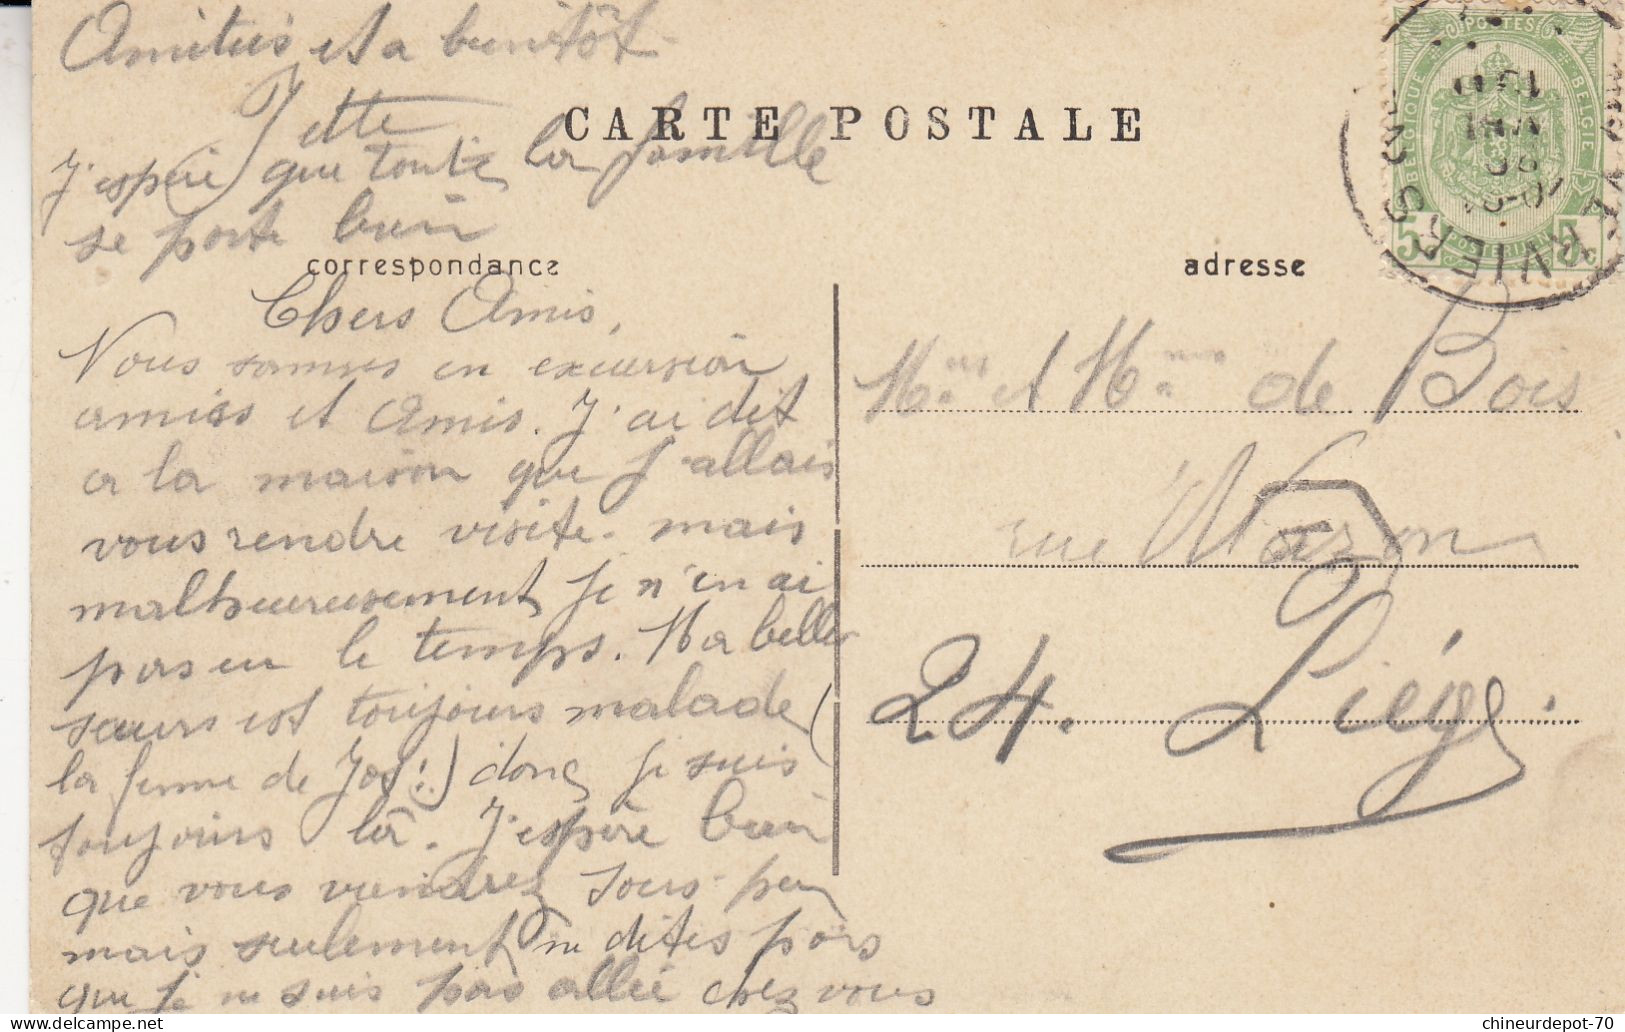 Amitiés et a bientôt
Jette
CARTE POSTALE
J'espère que toute la famille
se porte bien
correspondance
adresse
Chers Amis,
Nous sommes en excursion
amies et Amis. J'ai dit
a la maison que j'allais
vous rendre visite. mais
malheureusement je n'en ai
pas eu le temps. Ma belle
sœurs est toujours malade (
la femme de Jos:) donc je suis
toujours là. J'espère bien
que vous viendrez sous peu
mais seulement ne dites pas
que je ne suis pas allée chez vous
de Bois
rue Wazon
24. Liége.
POSTES
BELGIQUE
BELGIE
5c
5c
POSTERIJEN
chineurdepot-70